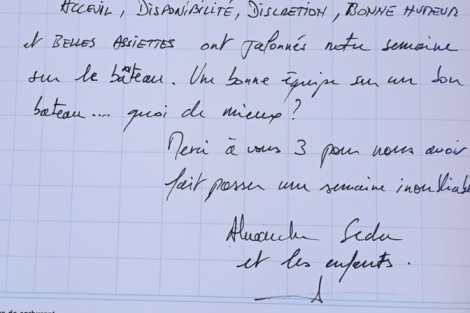 ACCEUIL, DISPONIBILITÉ, DISCRETION, BONNE HUMEUR
et BELLES ASSIETTES ont jalonnés notre semaine
sur le bateau. Une bonne équipe sur un bon
bateau.... quoi de mieux?
Merci à vous 3 pour nous avoir
fait passer une semaine inoubliable
et les enfants.